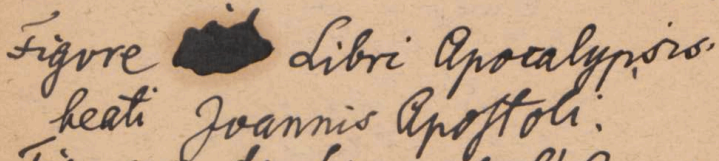 Figure Libri Apocalypsis.
beati Joannis Apostoli.